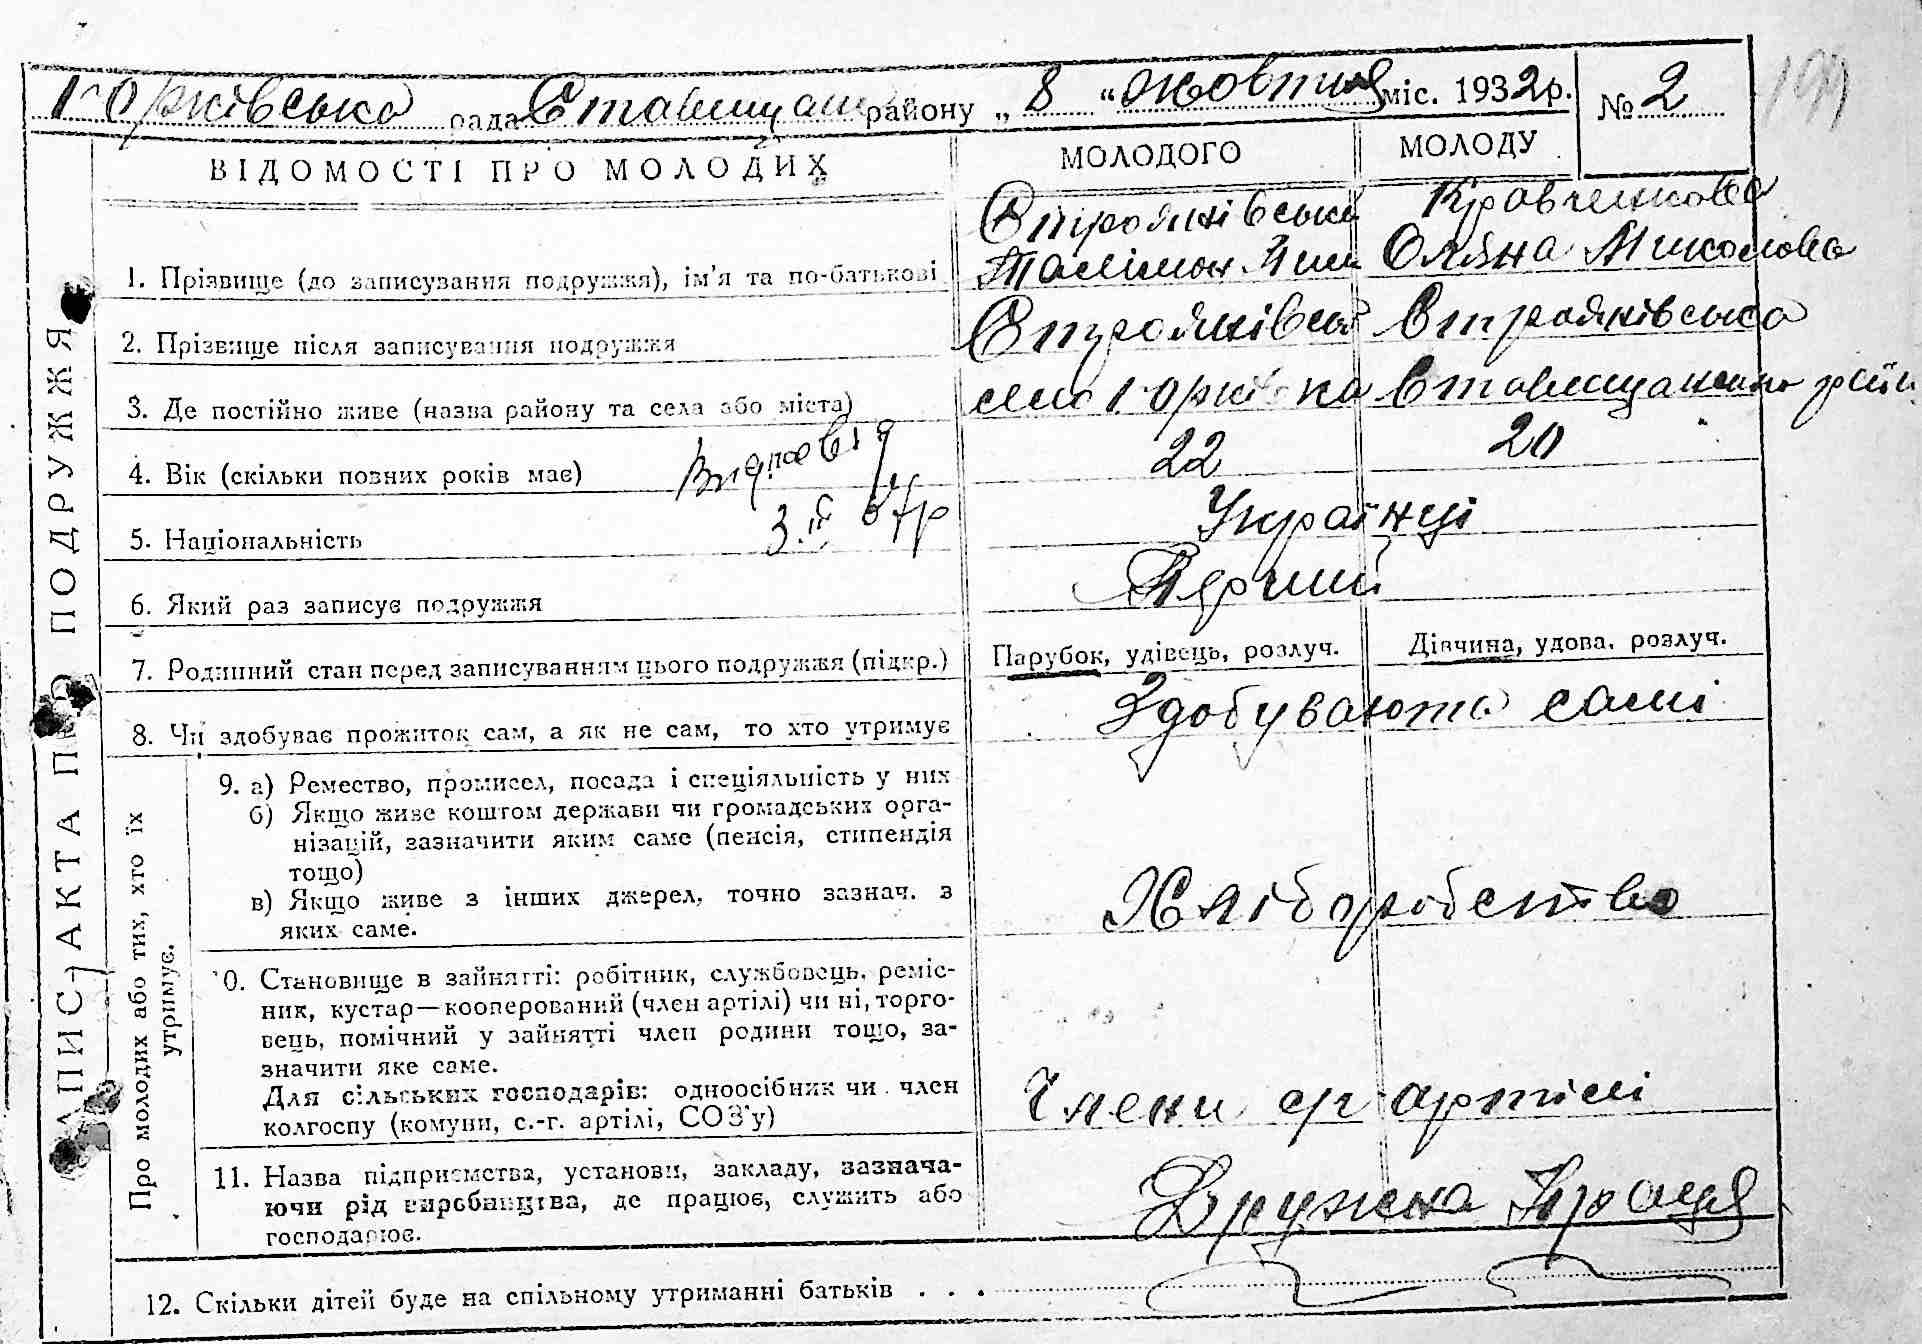 Юрківська рада Ставищан району „ 8 “ жовтня міс. 1932 р. № 2
199
ВІДОМОСТІ ПРО МОЛОДИХ
МОЛОДОГО
МОЛОДУ
ЗАПИС-АКТА ПРО ПОДРУЖЖЯ
1. Прізвище (до записування подружжя), ім'я та по-батькові
Строяківськ
Кравченкова
Оляна Миколова
2. Прізвище після записування подружжя
Строяківськ
Строяківська
3. Де постійно живе (назва району та села або міста)
село Юрківка Ставищанського рай
4. Вік (скільки повних років має)
22
20
Відповід
5. Національність
Українці
6. Який раз записує подружжя
Перший
7. Родинний стан перед записуванням цього подружжя (підкр.)
Парубок, удівець, розлуч.
Дівчина, удова, розлуч.
8. Чи здобуває прожиток сам, а як не сам, то хто утримує
Здобувають самі
Про молодих або тих, хто їх
утримує.
9. а) Ремество, промисел, посада і спеціяльність у них
б) Якщо живе коштом держави чи громадських орга-
нізацій, зазначити яким саме (пенсія, стипендія
тощо)
в) Якщо живе з інших джерел, точно зазнач. з
яких саме.
Хліборобство
10. Становище в зайнятті: робітник, службовець, реміс-
ник, кустар—кооперований (член артілі) чи ні, торго-
вець, помічний у зайнятті член родини тощо, за-
значити яке саме.
Для сільських господарів: одноосібник чи член
колгоспу (комуни, с.-г. артілі, СОЗ'у)
Члени сг артілі
11. Назва підприємства, установи, закладу, зазнача-
ючи рід виробництва, де працює, служить або
господарює.
Дружна Праця
12. Скільки дітей буде на спільному утриманні батьків . . .